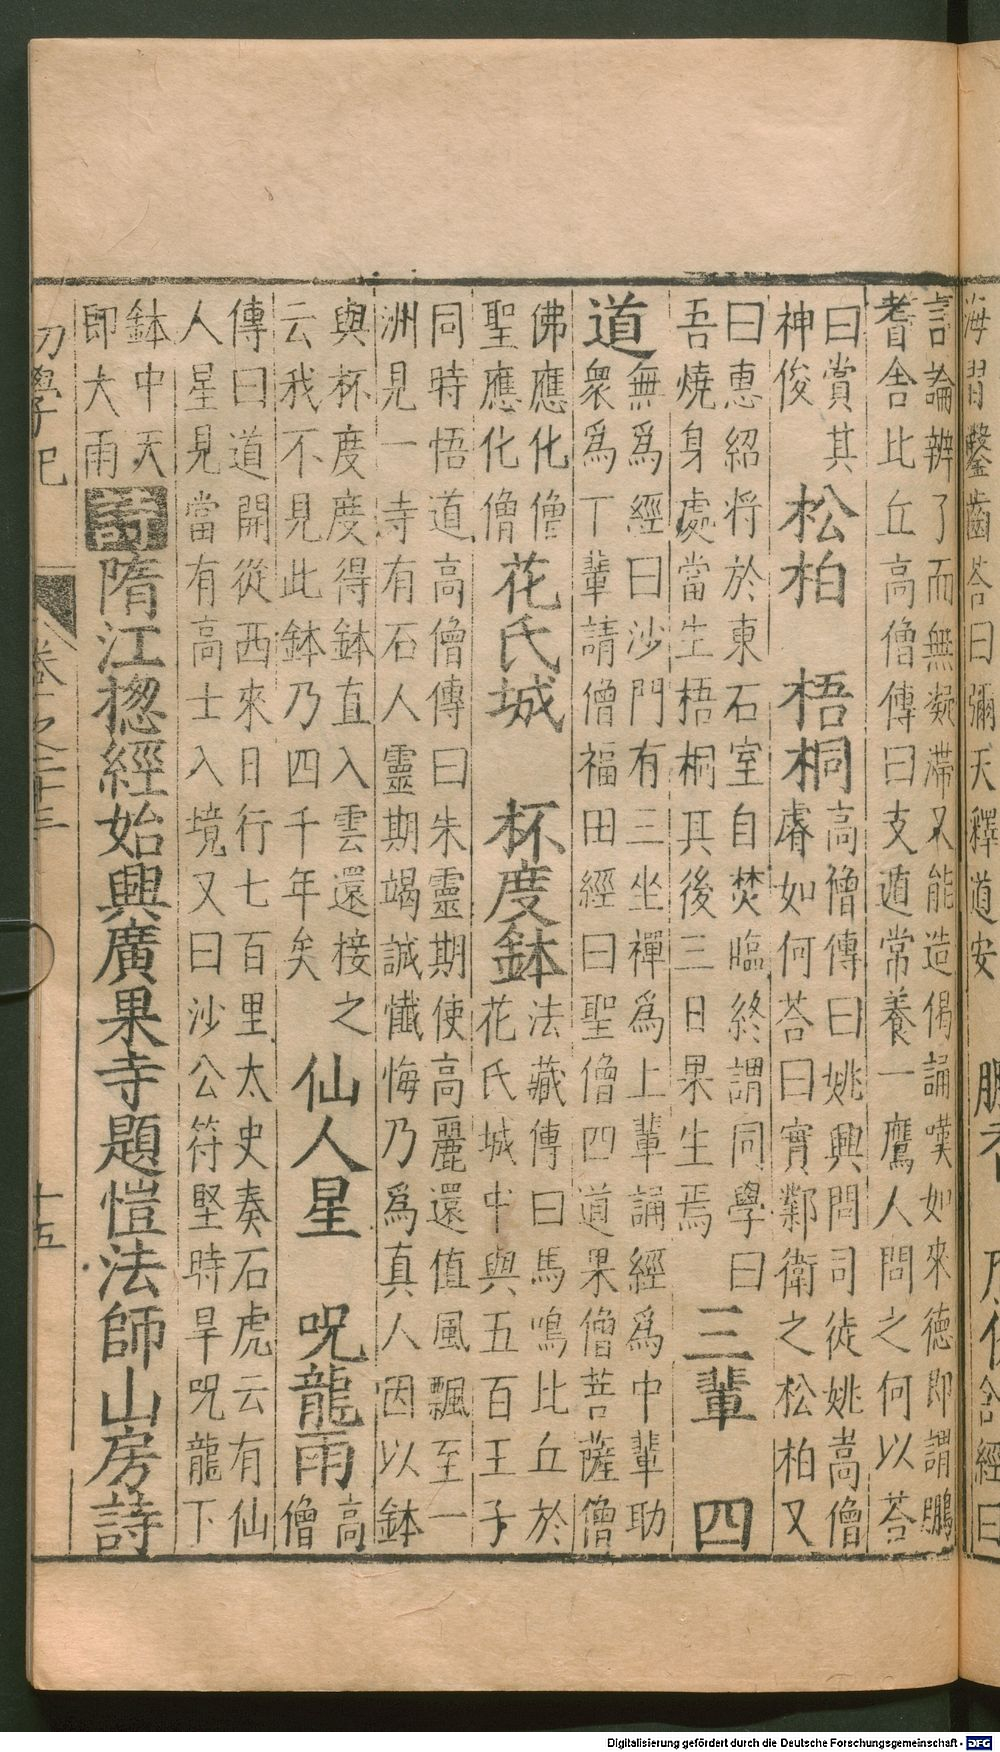 言論辨了而無凝滯又能造偈誦嘆如來德即謂鵬
耆舎比丘高僧傳曰支遁常養一鷹人問之何以荅
曰賞其
神俊
松柏
梧桐
高僧傳曰姚興問司徒姚嵩僧
䜭如何荅曰實鄴衛之松柏又
曰惠紹将於東石室自焚臨終謂同學曰
吾燒身處當生梧桐其後三日果生焉
三輩
四
道
無爲經曰沙門有三坐禪爲上輩誦經爲中輩助
衆爲丁輩請僧福田經曰聖僧四道果僧菩薩僧
佛應化僧
聖應化僧
花氏城
杯度鉢
法藏傳曰馬鳴比丘於
花氏城中與五百王子
同時悟道高僧傳曰朱靈期使高麗還值風飄至一
洲見一寺有石人靈期竭誠懺悔乃爲真人因以鉢
與杯度度得鉢直入雲還接之
云我不見此鉢乃四千年矣
仙人星
呪龍雨
高
僧
傳曰道開從西來日行七百里太史奏石虎云有仙
人星見當有高士入境又曰沙公符堅時旱呪龍下
鉢中天
即大雨
詩
隋江揔經始興廣果寺題愷法師山房詩
初學記
卷之二十三
十五
海習鑿齒荅曰彌天釋道安
經曰
Digitalisierung gefördert durch die Deutsche Forschungsgemeinschaft - DFG